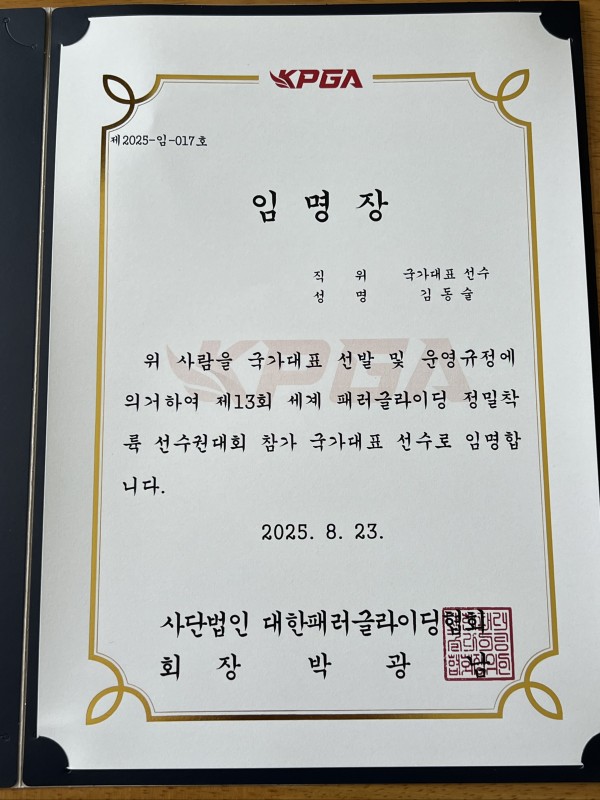 KPGA
제2025-임-017호
임 명 장
직 위 국가대표 선수
성 명 김 동 술
위 사람을 국가대표 선발 및 운영규정에
의거하여 제13회 세계 패러글라이딩 정밀착
륙 선수권대회 참가 국가대표 선수로 임명합
니다.
2025. 8. 23.
사단법인 대한패러글라이딩협회
회 장 박 광